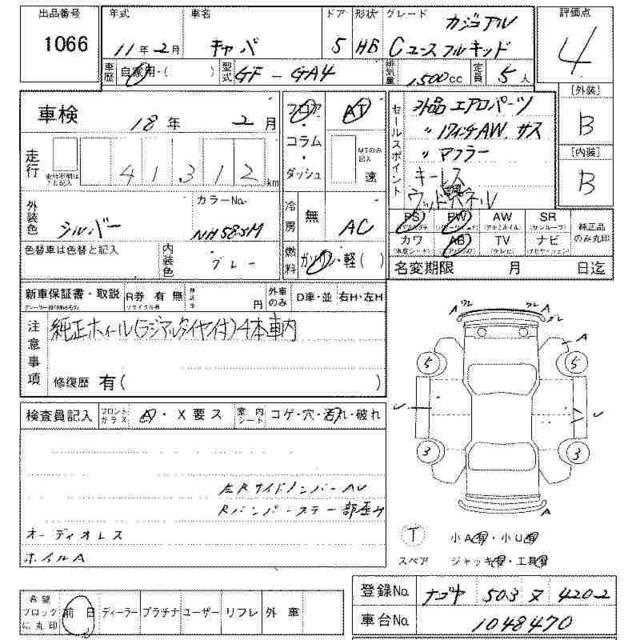 出品番号 1066
年式 11年2月
車名 キャパ
ドア 5 形状 HB
グレード カジュアル
Cユースフルキッド
評価点 4
車歴 自家用・( )
型式 GF-GA4
排気量 1,500cc 定員 5人
車検 18年 2月
フロア・コラム・ダッシュ
AT
MTのみ記入 速
セールスポイント
外品エアロパーツ
〃17インチAW. サス
〃マフラー
キーレス
ウッドパネル
[外装] B
[内装] B
走行 41312km
外装色 シルバー
カラーNo. NH585M
冷房 無 AC
PS PW AW SR 純正品のみ丸印
カワ AB TV ナビ
色替車は色替と記入
内装色 グレー
燃料 ガソリン・軽( )
名変期限 月 日迄
新車保証書・取説 R券 有 無 円 外車のみ D車・並 右H・左H
注意事項
純正ホイール(ラジアルタイヤ付)4本車内
修復歴 有( )
検査員記入 フロントガラス A・X要ス 室内シート コゲ・穴・汚れ・破れ
左RサイドインナーAU
Rバンパーステー部歪み
オーディオレス
ホイルA
ワレ ワレ
A A
5 5
3 3
A A
T 小A・小U
スペア ジャッキ・工具
希望ブロックに丸印 前日 ディーラー プラチナ ユーザー リフレ 外車
登録No. ナゴヤ 503 ヌ 4202
車台No. 1048470